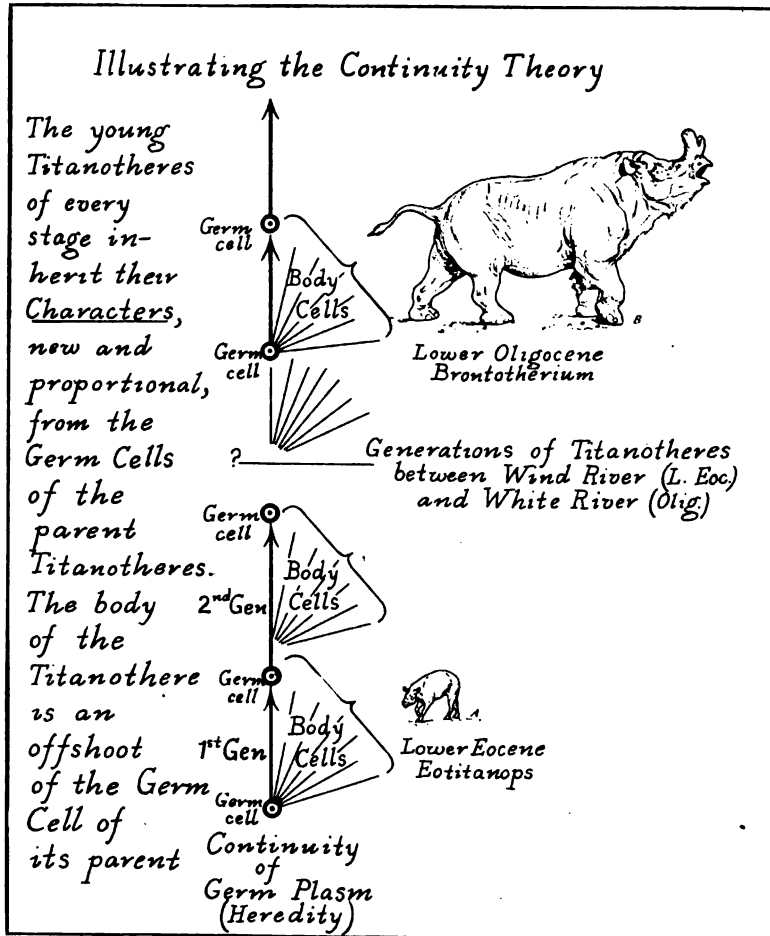 Illustrating the Continuity Theory
The young
Titanotheres
of every
stage in-
herit their
Characters,
new and
proportional,
from the
Germ Cells
of the
parent
Titanotheres.
The body
of the
Titanothere
is an
offshoot
of the Germ
Cell of
its parent
Germ
cell
Body
Cells
Germ
cell
B
Lower Oligocene
Brontotherium
?
Generations of Titanotheres
between Wind River (L. Eoc.)
and White River (Olig.)
Germ
cell
Body
Cells
2nd Gen
Germ
cell
Body
Cells
1st Gen
A
Lower Eocene
Eotitanops
Germ
cell
Continuity
of
Germ Plasm
(Heredity)